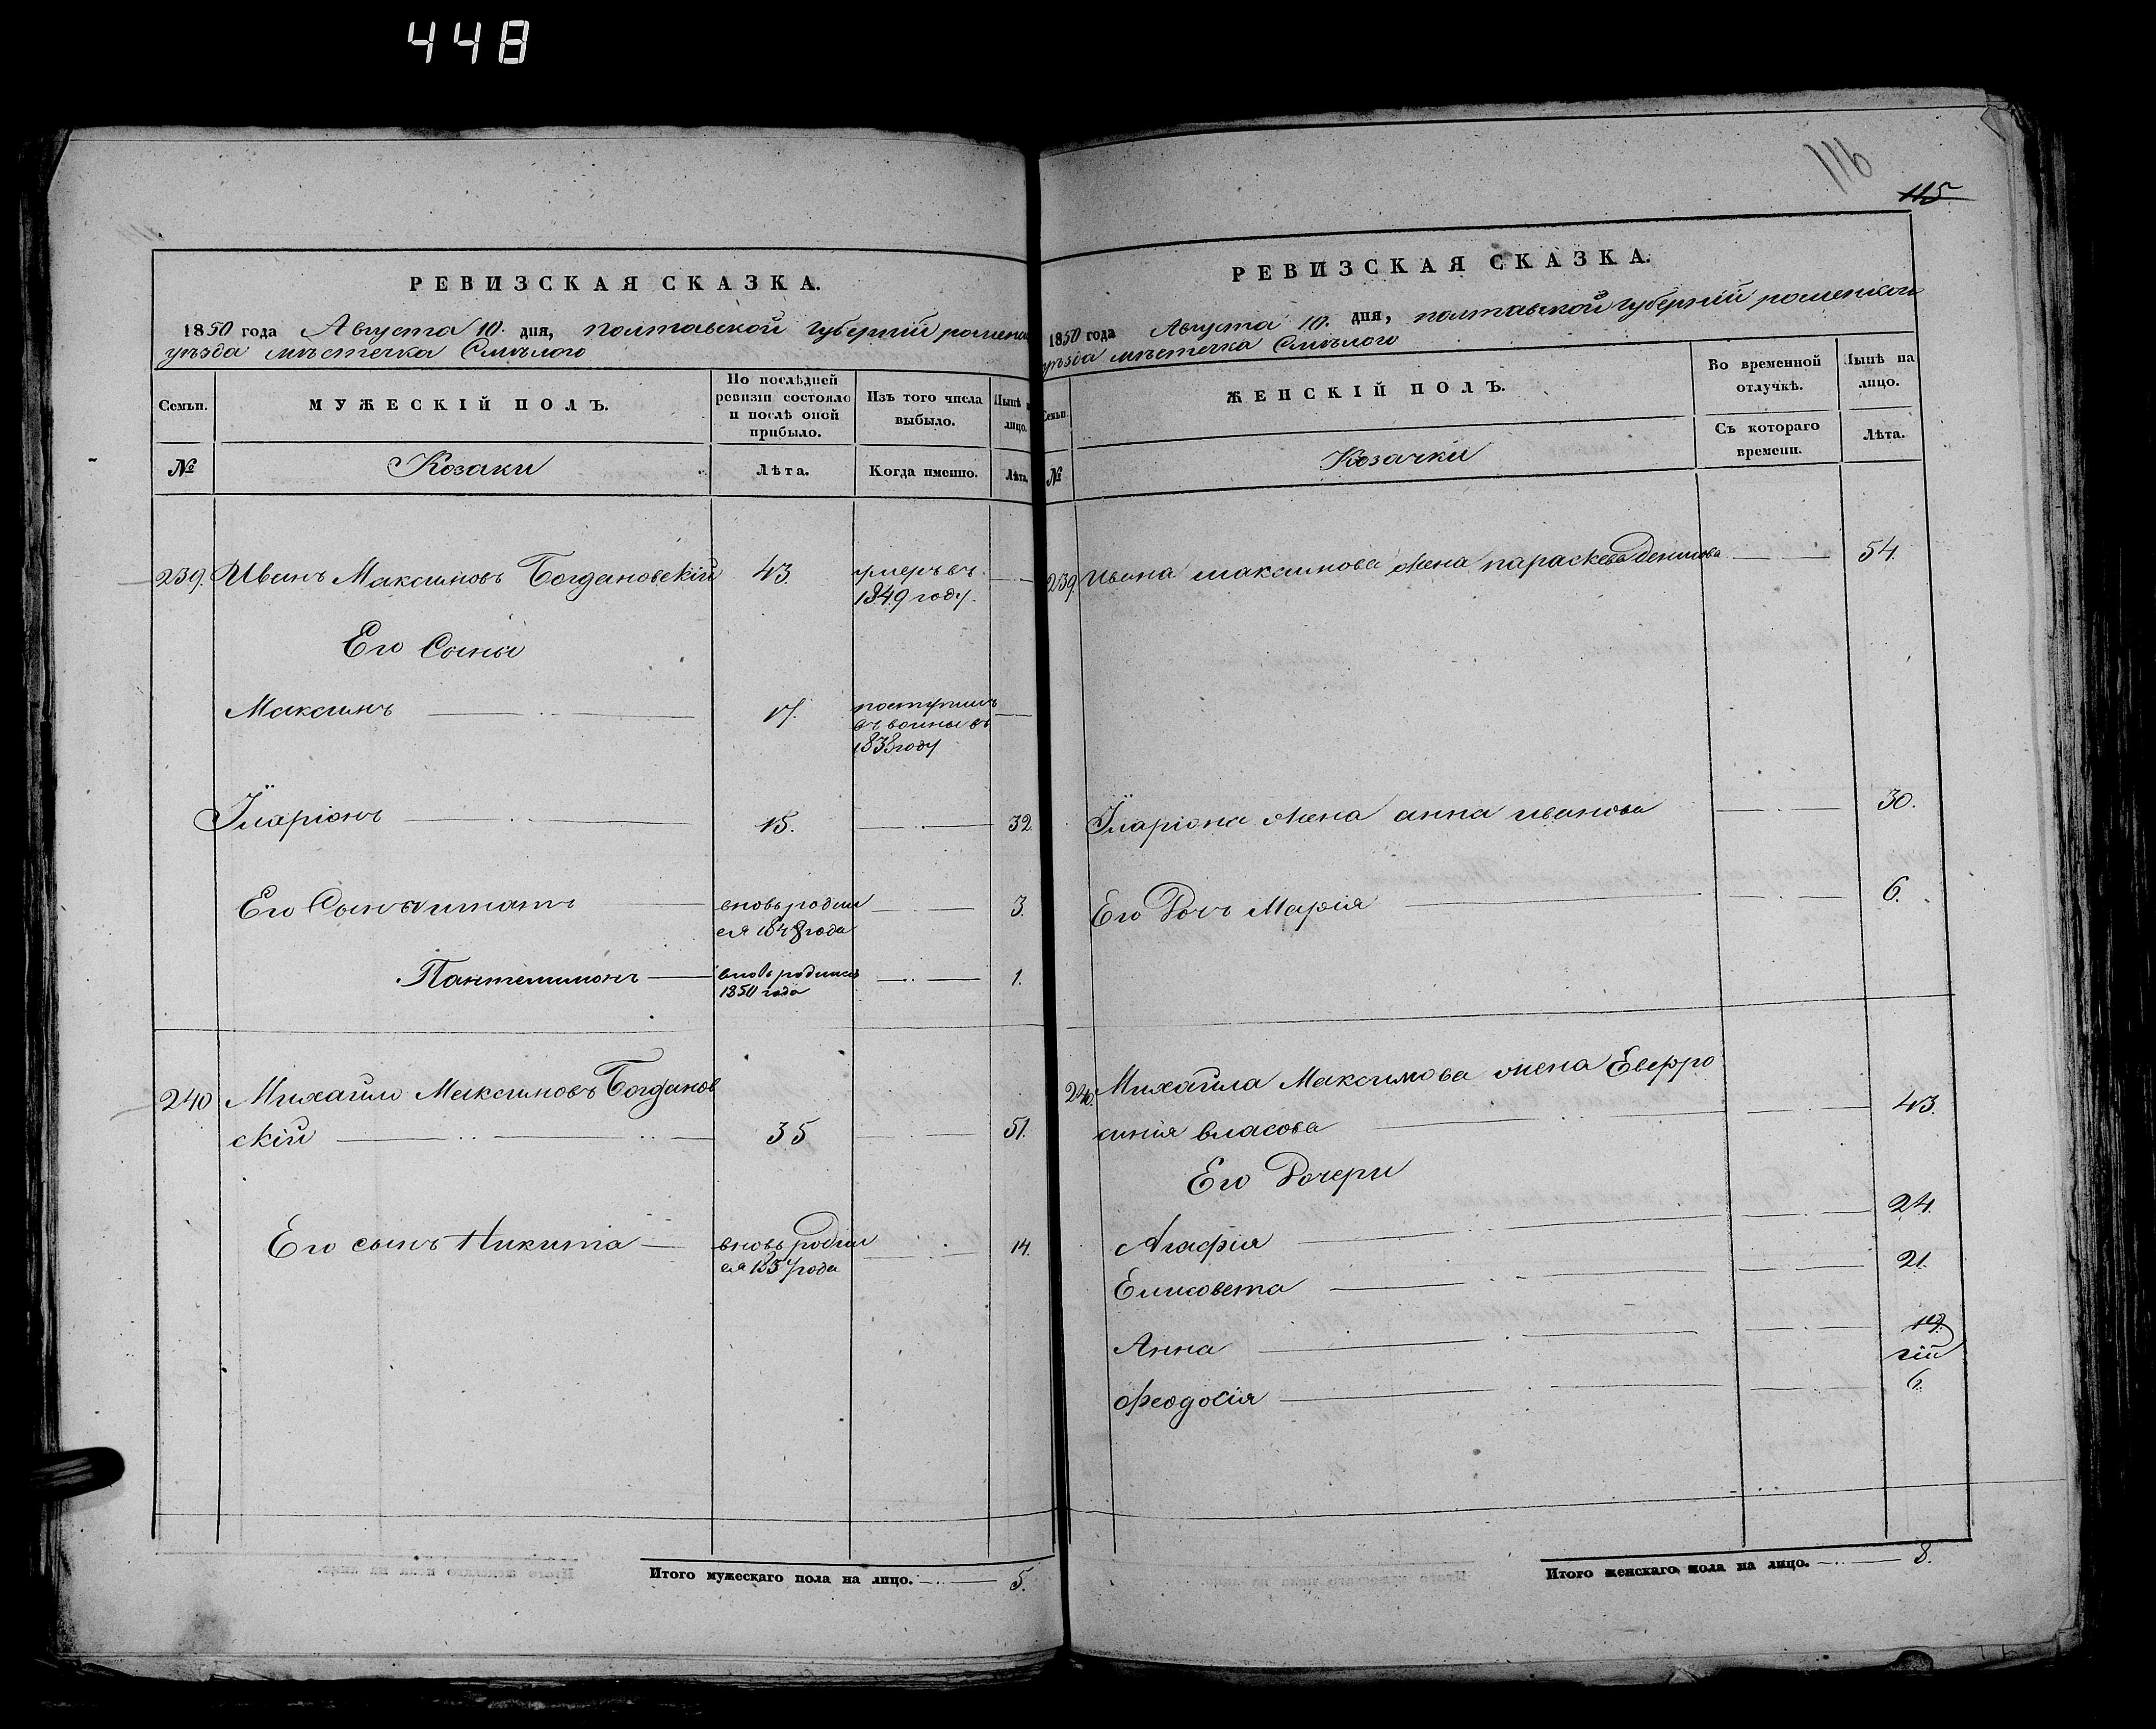 448
116
115
РЕВИЗСКАЯ СКАЗКА.
1850 года Августа 10. дня, полтавской губерніи роменск
уезда мѣстечка Смѣлого
Семьи.
МУЖЕСКІЙ ПОЛЪ.
По послѣдней ревизіи состояло и послѣ оной прибыло.
Изъ того числа выбыло.
Нынѣ н лицо.
№
Козаки
Лѣта.
Когда именно.
Лѣта.
239. Иванъ Максимовъ Богдановскій 43. умеръ въ
1849 году.
Его Сыны
Максимъ 17. поступилъ
въ воины въ
1838 году
Їларіонъ 15. 32
Его Сынъ Игнатъ вновь родил 3.
ся 1848 года
Пантелимонъ вновь родился 1.
1850 года
240 Михайло Максимовъ Богданов
скій 35 51.
Его сынъ Никита вновь родил 14.
ся года
Итого мужескаго пола на лицо. 5.
РЕВИЗСКАЯ СКАЗКА.
1850 года Августа 10. дня, полтавской губерніи роменского
уезда мѣстечка Смѣлого
Семьи
ЖЕНСКІЙ ПОЛЪ.
Во временной отлучкѣ.
Нынѣ на лицо.
№
Козачки
Съ котораго времени.
Лѣта.
239. Ивана максимова жена параскева Денисова 54.
Їларіона жена анна иванова 30.
Его Дочь Марія 6.
240. Михайла Максимова жена Евфро
синія власова 43.
Его Дочери
Агафія 24.
Елисовета 21.
Анна
Феодосія 6.
Итого женскаго пола на лицо. 8.